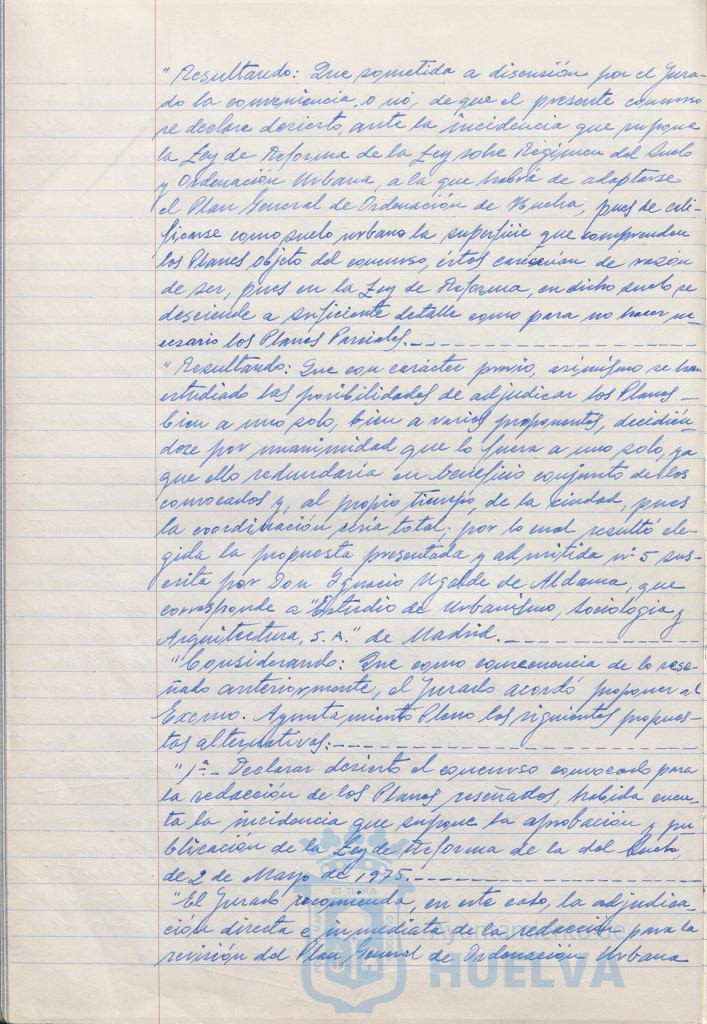 "Resultando: Que sometida a discusión por el Jura-
do la conveniencia, o no, de que el presente concurso
se declare desierto, ante la incidencia que supone
la Ley de Reforma de la Ley sobre Régimen del Suelo
y Ordenación Urbana, a la que habrá de adaptarse
el Plan General de Ordenación de Huelva, pues de cali-
ficarse como suelo urbano la superficie que comprenden
los Planes objeto del concurso, éstos carecerían de razón
de ser, pues en la Ley de Reforma, en dicho suelo se
desciende a suficiente detalle como para no hacer ne-
cesario los Planes Parciales.
"Resultando: Que con carácter previo, asimismo se han
estudiado las posibilidades de adjudicar los Planes
bien a uno solo, bien a varios proponentes, decidién-
dose por unanimidad que lo fuera a uno solo, ya
que ello redundaría en beneficio conjunto de los
convocados y, al propio tiempo, de la ciudad, pues
la coordinación sería total; por lo cual resultó ele-
gida la propuesta presentada y admitida nº 5 sus-
crita por Don Ignacio Ugalde de Aldama, que
corresponde a "Estudio de Urbanismo, Sociología y
Arquitectura, S.A." de Madrid.
"Considerando: Que como consecuencia de lo rese-
ñado anteriormente, el Jurado acordó proponer al
Excmo. Ayuntamiento Pleno las siguientes propues-
tas alternativas:
"1ª.- Declarar desierto el concurso convocado para
la redacción de los Planes reseñados, habida cuen-
ta la incidencia que supone la aprobación y pu-
blicación de la Ley de Reforma de la del Suelo,
de 2 de Mayo de 1975.
"El Jurado recomienda, en este caso, la adjudica-
ción directa e inmediata de la redacción para la
revisión del Plan General de Ordenación Urbana
ET TERRA
Ayuntamiento de
HUELVA